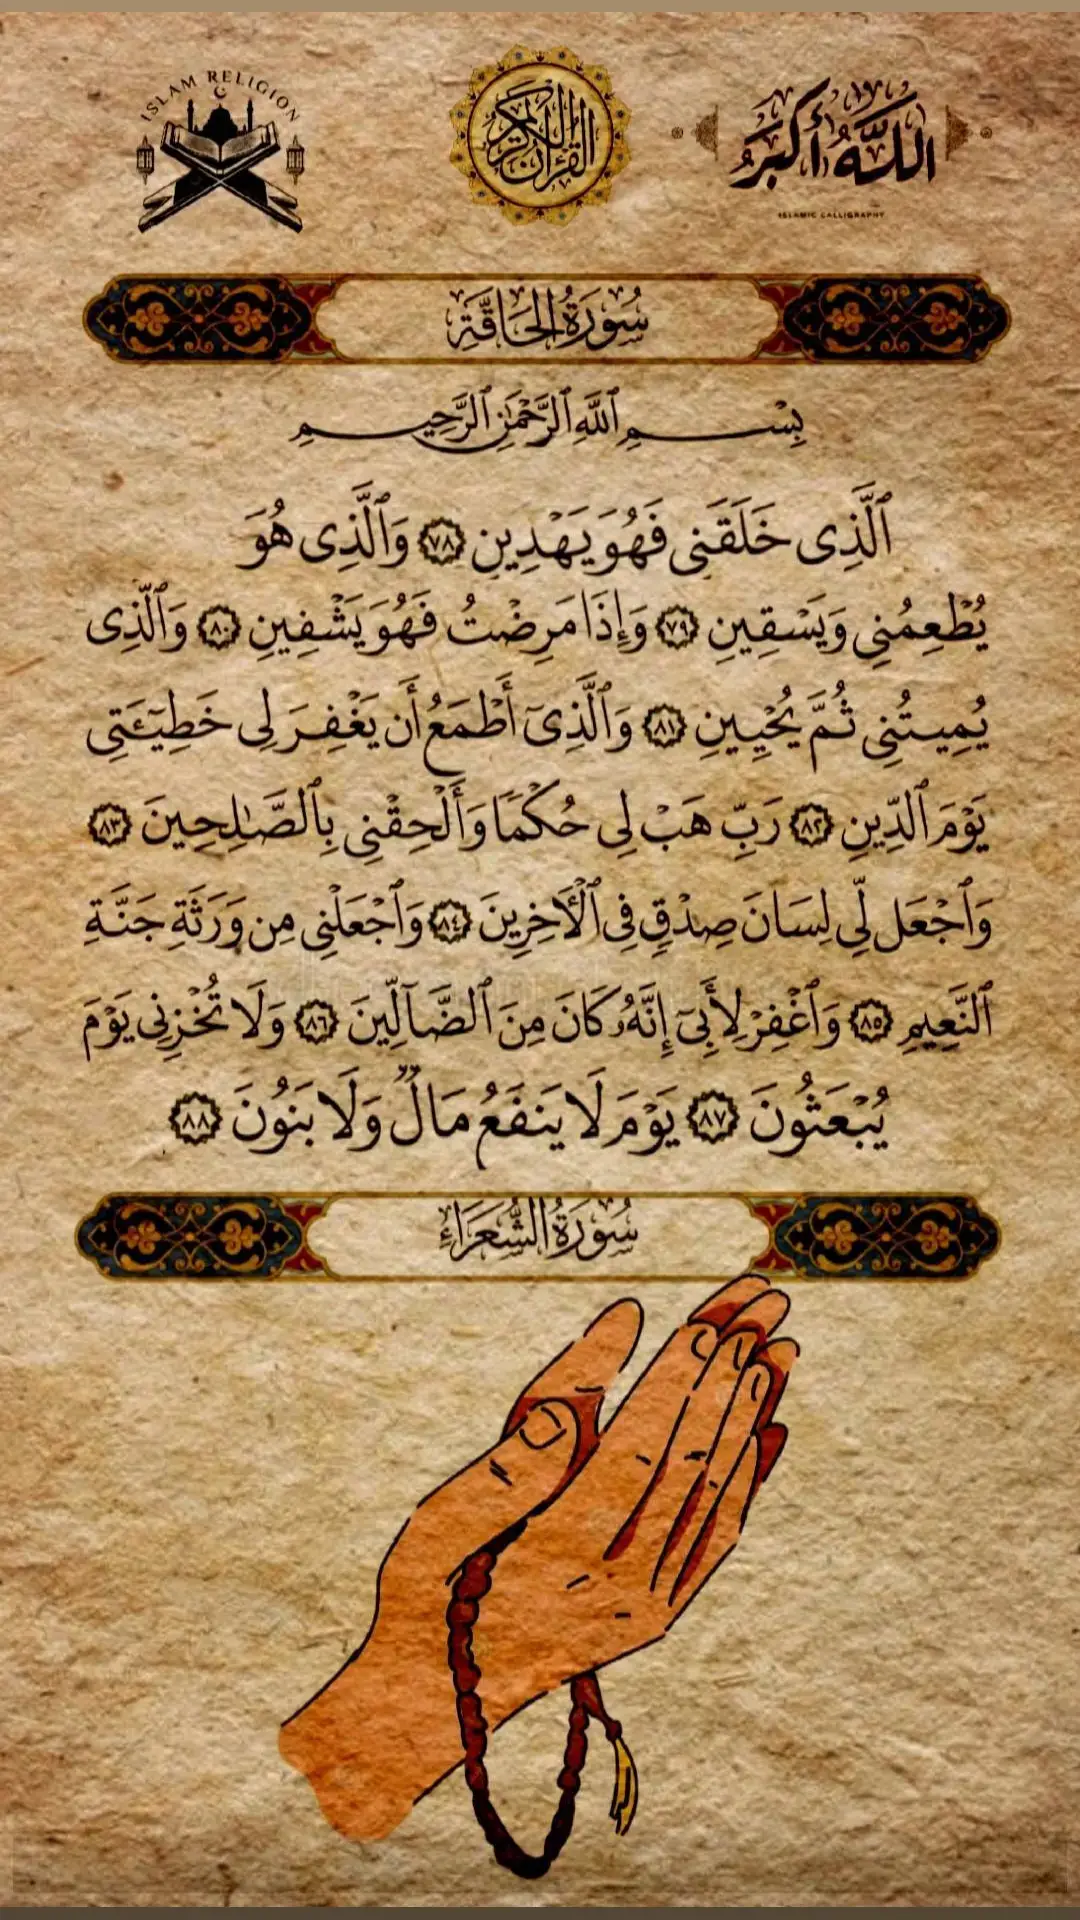 ISLAM RELIGION
القرآن الكريم
اللَّهُ أَكْبَرُ
ISLAMIC CALLIGRAPHY
سُورَةُ الحَاقَّةِ
بِسْمِ ٱللَّهِ ٱلرَّحْمَٰنِ ٱلرَّحِيمِ
ٱلَّذِى خَلَقَنِى فَهُوَ يَهْدِينِ ٧٨ وَٱلَّذِى هُوَ
يُطْعِمُنِى وَيَسْقِينِ ٧٩ وَإِذَا مَرِضْتُ فَهُوَ يَشْفِينِ ٨٠ وَٱلَّذِى
يُمِيتُنِى ثُمَّ يُحْيِينِ ٨١ وَٱلَّذِىٓ أَطْمَعُ أَن يَغْفِرَ لِى خَطِيٓـَٔتِى
يَوْمَ ٱلدِّينِ ٨٢ رَبِّ هَبْ لِى حُكْمًا وَأَلْحِقْنِى بِٱلصَّٰلِحِينَ ٨٣
وَٱجْعَل لِّى لِسَانَ صِدْقٍ فِى ٱلْـَٔاخِرِينَ ٨٤ وَٱجْعَلْنِى مِن وَرَثَةِ جَنَّةِ
ٱلنَّعِيمِ ٨٥ وَٱغْفِرْ لِأَبِىٓ إِنَّهُۥ كَانَ مِنَ ٱلضَّآلِّينَ ٨٦ وَلَا تُخْزِنِى يَوْمَ
يُبْعَثُونَ ٨٧ يَوْمَ لَا يَنفَعُ مَالٌ وَلَا بَنُونَ ٨٨
سُورَةُ الشُّعَرَاءِ